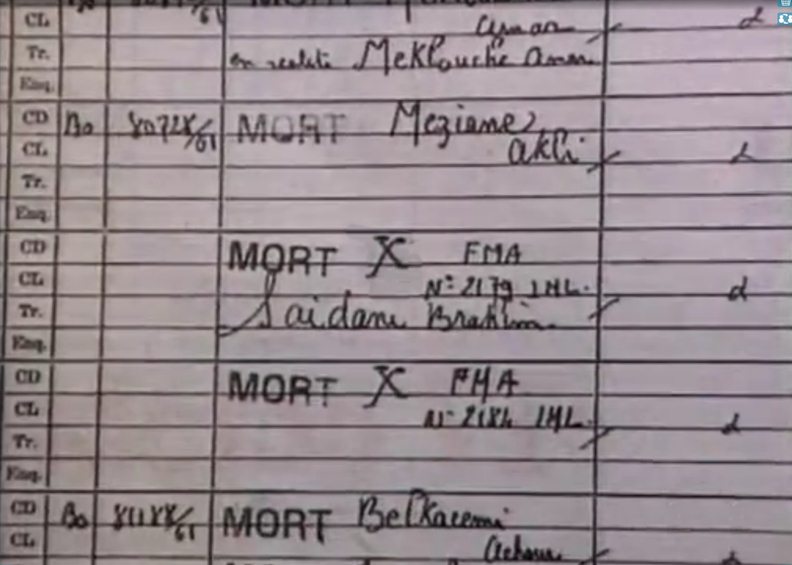 CL
Tr. en realité Meklouche Amar
Enq.
CD Bo 80728/61 MORT Meziane
CL Akli d
Tr.
Enq.
CD MORT X FMA
CL N° 2179 IML. d
Tr. Saidani Brahim.
Enq.
CD MORT X FMA
CL N° 2184 IML. d
Tr.
Enq.
CD Bo 81188/61 MORT Belkacemi
CL Achour